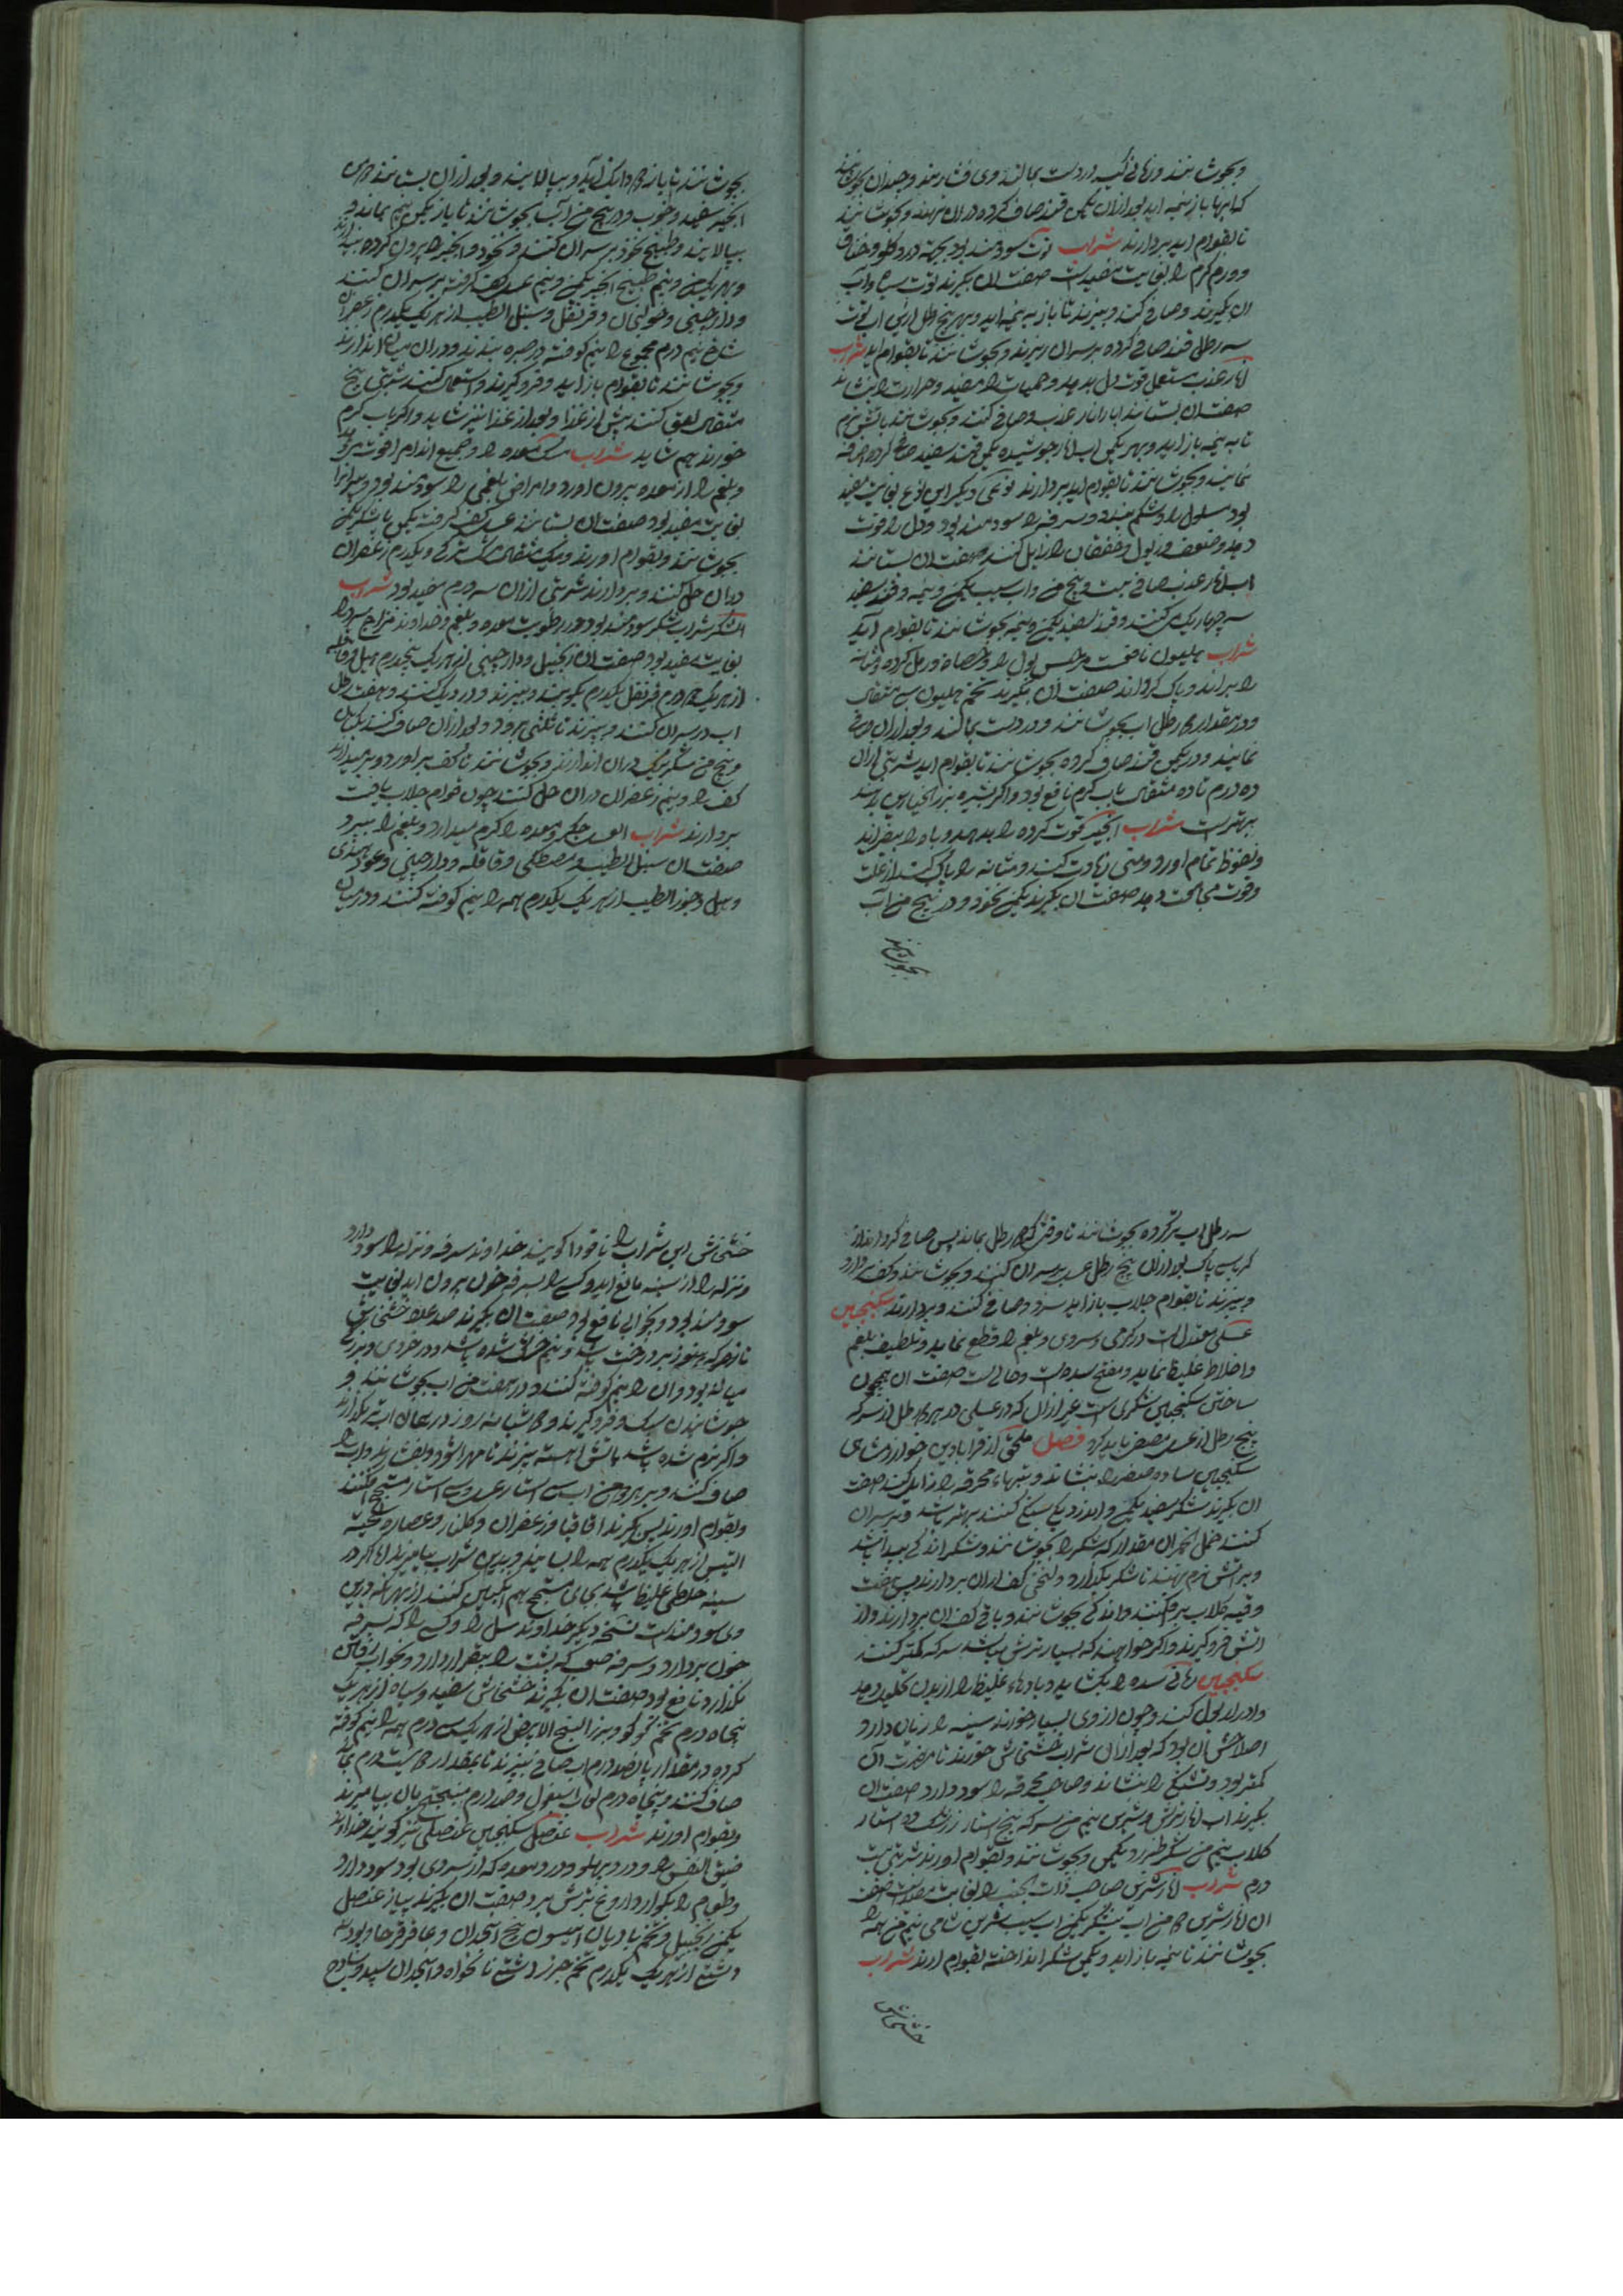 و بجوشانند و زمانی کیسه در دست بمالند و می فشارند و چندان بجوشانند
که ابها باز نیمه اید بعد ازان یکمن قند صاف کرده دران نهند و بجوشانند
تا بقوام اید بردارند شراب توت سودمند بود بجهة درد کلو و خناق
و ورم کرم را بغایت مفیدست صفت ان بکیرند توت سیاه و آب
ان بکیرند و صافی کنند و بپزند تا باز به نیمه اید و بهر پنج رطل ازین اب توت
سه رطل قند صافی کرده بر سر ان ریزند و بجوشانند تا بقوام اید شراب
انار عذب مستعمل قوت دل بدهد و حمیات را مفید و حرارت را بنشاند
صفت ان بستانند اب انار عذب و صافی کنند و بجوشانند باتش نرم
تا به نیمه باز اید و بهر یکمن اب انار جوشیده یکمن قند سفید صافی کرده اضافه
نمایند و بجوشانند تا بقوام اید بردارند نوعی دیکر این نوع بغایت مفید
بود مسلول را و شکم ببندد و سرفه را سودمند بود و دل را قوت
دهد و ضعف و ذبول و خفقان را زایل کند صفت ان بستانند
اب انار عذب صافی بیست و پنج من و اب سیب یکمن و نیمه و قند سفید
سه چهار یک من کنند و قند سفید یکمن و نیمه بجوشانند تا بقوام آید
شراب هلیون نافعست مر حبس بول را و حصاة و رمل کرده و مثانه
را براند و پاک کرداند صفت آن بکیرند تخم هلیون سی مثقال
و در مقدار ده رطل اب بجوشانند و در دست بمالند و بعد ازان صافی
نمایند و در یکمن قند صاف کرده بجوشانند تا بقوام اید شربتی ازان
ده درم تا ده مثقال باب کرم نافع بود و اکر بشیره بزر الخیارین دهند
بهترست شراب انجیر قوت کرده را بدهد و باه را بیفزاید
و نعوظ تمام اورد و منی زیادت کند و مثانه را پاک کند از علت
و قوت مجامعت دهد صفت ان بکیرند یکمن نخود و در پنج من آب
بجوشانند
بجوشانند تا باز دو دانک آید و بپالایند و بعد ازان بستانند دو من
انجیر سفید و خوب و در پنج من آب بجوشانند تا باز یکمن و نیم بماند و
بپالایند و طبیخ نخود بر سر ان کنند و نخود و انجیر را بیرون کرده بیندازند
و بهر یکمن و نیم طبیخ انجیر یکمن و نیم عسل کف کرفته بر سر ان کنند
و دارچینی و خولنجان و قرنفل و سنبل الطیب از هر یک یکدرم زعفران
شاخ نیم درم مجموع را نیم کوفته در صره بندند و دران میانه اندازند
و بجوشانند تا بقوام باز اید و فرو کیرند و استعمال کنند شربتی پنج
مثقال لعق کنند پیش از غذا و بعد از غذا نیز شاید و اکر باب کرم
خورند هم شاید شراب عسل معده را و جمیع اندام را قوت دهد
و بلغم را از معده بیرون اورد و امراض بلغمی را سودمند بود و پیرانرا
بغایت مفید بود صفت ان بستانند عسل کف کرفته یکمن با شکر یکمن
بجوشانند و بقوام اورند و یک مثقال مشک ترکی و یکدرم زعفران
دران حل کنند و بردارند شربتی ازان سه درم مفید بود شراب
الشکر شراب شکر سودمند بود در رطوبت معده و بلغم و خداوند مزاج سرد را
بغایت مفید بود صفت ان زنجبیل و دارچینی از هر یک پنجدرم هیل و قاقله
از هر یک دو درم قرنفل یکدرم بکوبند و ببیزند و در دیک کنند و هفت رطل
اب در سر ان کنند و بپزند تا ثلثی برود و بعد ازان صاف کنند یکبار
و پنج من شکر نیک دران اندازند و بجوشانند تا کف براورد و برمیدارند
کف را و نیم زعفران دران حل کنند چون قوام جلاب یافت
بردارند شراب العسل جکر و معده را کرم میدارد و بلغم را ببرد
صفت ان سنبل الطیب و مصطکی و قاقله و دارچینی و عود هندی
و هیل و جوز الطیب از هر یک یکدرم همه را نیم کوفته کنند و در میان
سه رطل اب تر کرده بجوشانند تا وقتی که دو رطل بماند پس صافی کرده از
کرباس پاک بعد ازان پنج رطل عسل بر سر ان کنند و بجوشانند و کف بردارند
و بپزند تا بقوام جلاب باز اید سرد و صافی کنند و بردارند سکنجبین
عسلی معتدل است در کرمی و سردی و بلغم را قطع نماید و تلطیف بلغم
و اخلاط غلیظ نماید و مفتح سده است و جالی است صفت ان همچون
ساختن سکنجبین شکری است غیر ازان که در عسلی در هر ده رطل از سرکه
پنج رطل از عسل مصفی باید کرد فصل ملحق از قرابادین خوارزمشاهی
سکنجبین ساده صفرا را بنشاند و تبهاء محرقه را زایل کند صفت
ان بکیرند شکر سفید یکمن و اندر دیک سنکی کنند بهتر باشد و بر سر ان
کنند خل الخمر ان مقدار که شکر را بجوشانند و شکر اندکی پیدا باشد
و بر آتش نرم نهند تا شکر بکدازد و لختی کف ازان بردارند پس هفت
وقیه کلاب برافکنند و اندکی بجوشانند و باقی کف ان بردارند و از
اتش فرو کیرند و اکر خواهند که بسیار ترش نباشد سرکه کمتر کنند
سکنجبین رمانی سده را بکشاید و بادهاء غلیظ را از بدن تحلیل دهد
و ادرار بول کند و چون از وی بسیار خورند سینه را زیان دارد
اصلاحش ان بود که بعد ازان شراب خشخاش خورند تا مضرت ان
کمتر بود و تشنکی را بنشاند و صاحب محرقه را سود دارد صفت ان
بکیرند اب انار ترش و شیرین نیم من سرکه پنج استار زرشک ده استار
کلاب نیم من شکر طبرزد یکمن و بجوشانند و بقوام اورند شربتی بیست
درم شراب انار شیرین صاحب ذات الجنب را بغایت مفیدست صفت
ان انار شیرین ده من اب نیشکر یکمن اب سیب شیرین شامی نیم من همه را
بجوشانند تا نیمه باز اید و یکمن شکر انداخته بقوام ارند شراب
خشخاش
خشخاش این شراب را یاقودا کویند خداوند سرفه و نزله را سود دارد
و نزله را از سینه مانع اید و کسی را بسرفه خون بیرون اید بغایت
سودمند بود و بیخوابی نافع بود صفت ان بکیرند صد عدد خشخاش
تازه که هنوز بر درخت باشد و نیم خشک شده باشد و در خردی و بزرکی
میانه بود و ان را نیم کوفته کنند و در هفت من اب بجوشانند و
جوشانیدن سبک و فرو کیرند و ده شبانه روز در همان اب بکذارند
و اکر نرم شده باشد باتش اهسته بپزند تا مهرا شود و بفشارند و اب را
صاف کنند و بر هر دو من اب سی استار عسل و سی استار میبختج افکنند
و بقوام اورند پس بکیرند اقاقیا و زعفران و کلنار و عصاره لحیة
التیس از هر یک یکدرم همه را بسایند و بدین شراب بیامیزند اما اکر در
سینه خلطی غلیظ باشد بجای میبختج هم انکبین کنند از بهر انکه درین
وی سودمند است نسخه دیکر خداوند سل را و کسی را که بسرفه
خون بردارد و سرفه صعب که بشب را بیقرار دارد و بخواب رفتن
نکذارد نافع بود صفت ان بکیرند خشخاش سفید و سیاه از هر یک
پنجاه درم تخم کوکو و بزر البنج الابیض از هر یک سی درم همه را نیم کوفته
کرده در مقدار پانصد درم اب صافی بپزند تا بمقدار دویست درم بماند
صاف کنند و پنجاه درم لعاب اسبغول و صد درم میبختج بان بیامیزند
و بقوام اورند شراب عنصل سکنجبین عنصلی نیز کویند خداوند
ضیق النفس را و درد پهلو و درد معده که از سردی بود سود دارد
و طعام را بکوارد و آروغ ترش ببرد صفت ان بکیرند پیاز عنصل
یکمن زنجبیل و تخم بادیان انیسون بیخ انجدان و عاقرقرحا و پودنه
دشتی از هر یک یکدرم تخم جزر دشتی نانخواه و انجدان سپید و سداب